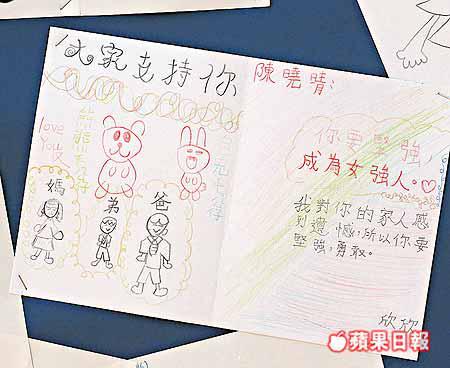 大家支持你
love
you
媽
弟
爸
陳曉晴:
你要堅強,
成為女強人。
我對你的家人感
到遺憾,所以你要
堅強,勇敢。
欣欣
蘋果日報